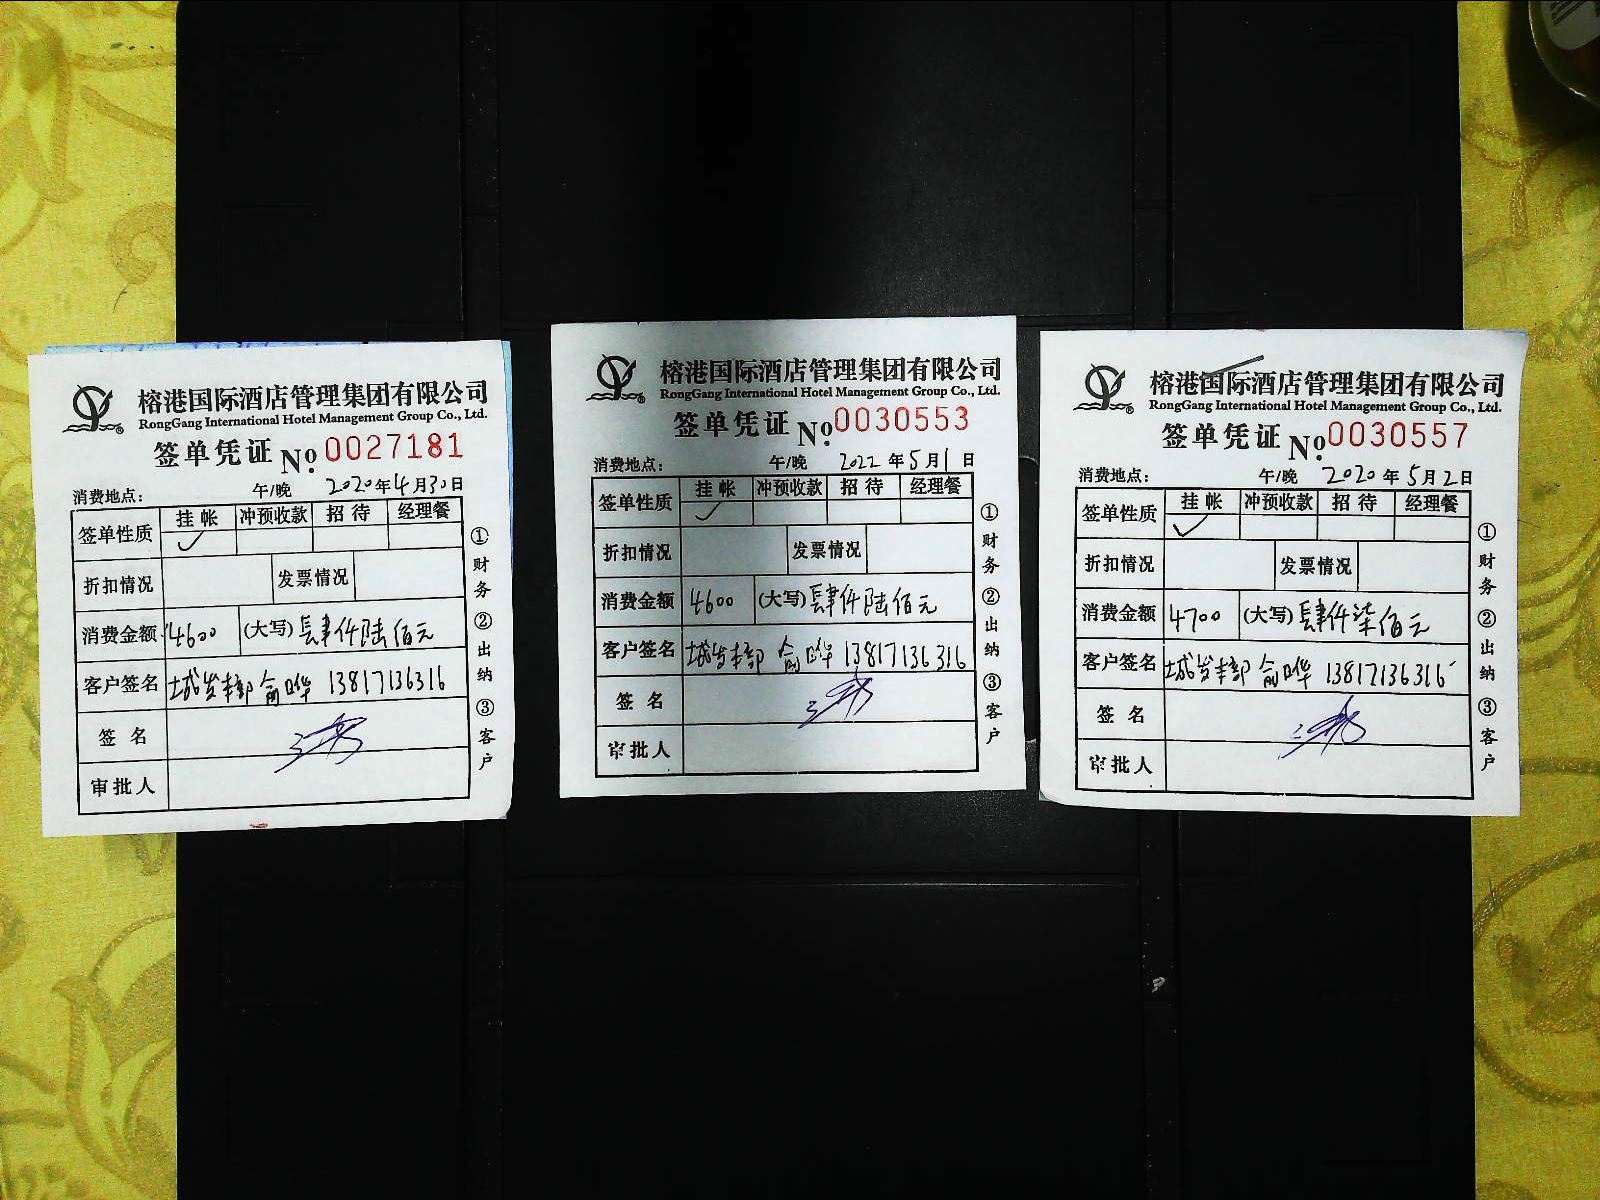 榕港国际酒店管理集团有限公司
RongGang International Hotel Management Group Co., Ltd.
签单凭证 No. 0027181
消费地点： 午/晚 2020年4月30日
签单性质 挂帐 冲预收款 招待 经理餐
✓
折扣情况 发票情况
消费金额 4600 (大写) 肆仟陆佰元
客户签名 城发本部 俞晔 13817136316
签名
审批人
①财务 ②出纳 ③客户
榕港国际酒店管理集团有限公司
RongGang International Hotel Management Group Co., Ltd.
签单凭证 No. 0030553
消费地点： 午/晚 2022年5月1日
签单性质 挂帐 冲预收款 招待 经理餐
✓
折扣情况 发票情况
消费金额 4600 (大写) 肆仟陆佰元
客户签名 城发本部 俞晔 13817136316
签名
审批人
①财务 ②出纳 ③客户
榕港国际酒店管理集团有限公司
RongGang International Hotel Management Group Co., Ltd.
签单凭证 No. 0030557
消费地点： 午/晚 2020年5月2日
签单性质 挂帐 冲预收款 招待 经理餐
✓
折扣情况 发票情况
消费金额 4700 (大写) 肆仟柒佰元
客户签名 城发本部 俞晔 13817136316
签名
审批人
①财务 ②出纳 ③客户